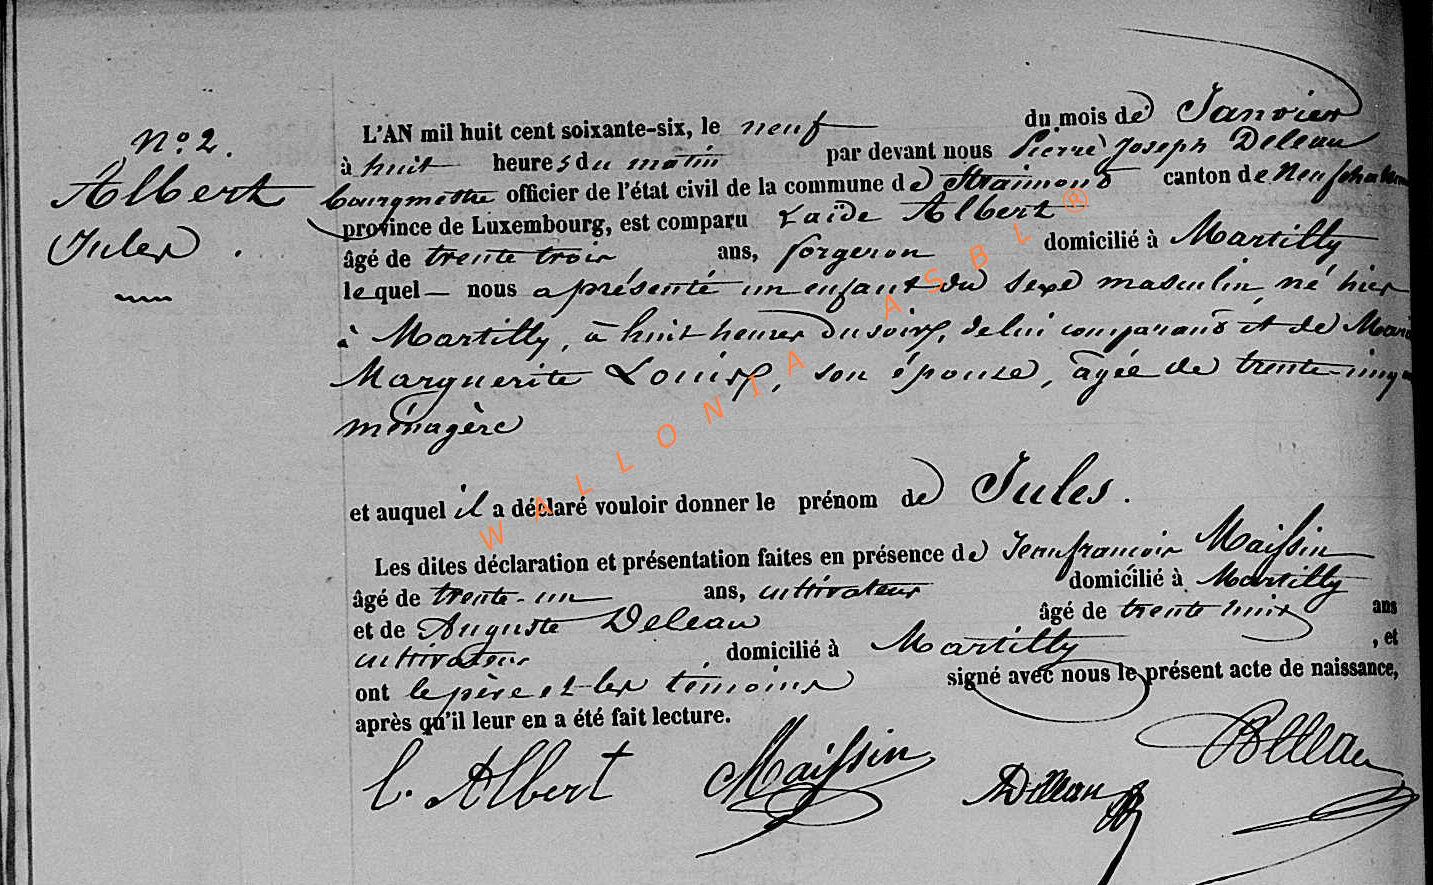 N° 2.
Albert
Jules.
L'AN mil huit cent soixante-six, le neuf du mois de Janvier
à huit heures du matin par devant nous Pierre Joseph Deleau
bourgmestre officier de l'état civil de la commune de Straimont canton de Neufchateau
province de Luxembourg, est comparu Laïde Albert
âgé de trente trois ans, forgeron domicilié à Martilly
lequel nous a présenté un enfant du sexe masculin, né hier
à Martilly, à huit heures du soir, de lui comparant et de Marie
Marguerite Louis, son épouse, âgée de trente-cinq
ménagère
et auquel il a déclaré vouloir donner le prénom de Jules.
Les dites déclaration et présentation faites en présence de Jean françois Maissin
âgé de trente-un ans, cultivateur domicilié à Martilly
et de Auguste Deleau âgé de trente huit ans
cultivateur domicilié à Martilly, et
ont le père et les témoins signé avec nous le présent acte de naissance,
après qu'il leur en a été fait lecture.
l. Albert Maissin ADeleau Deleau
WALLONIA ASBL ®